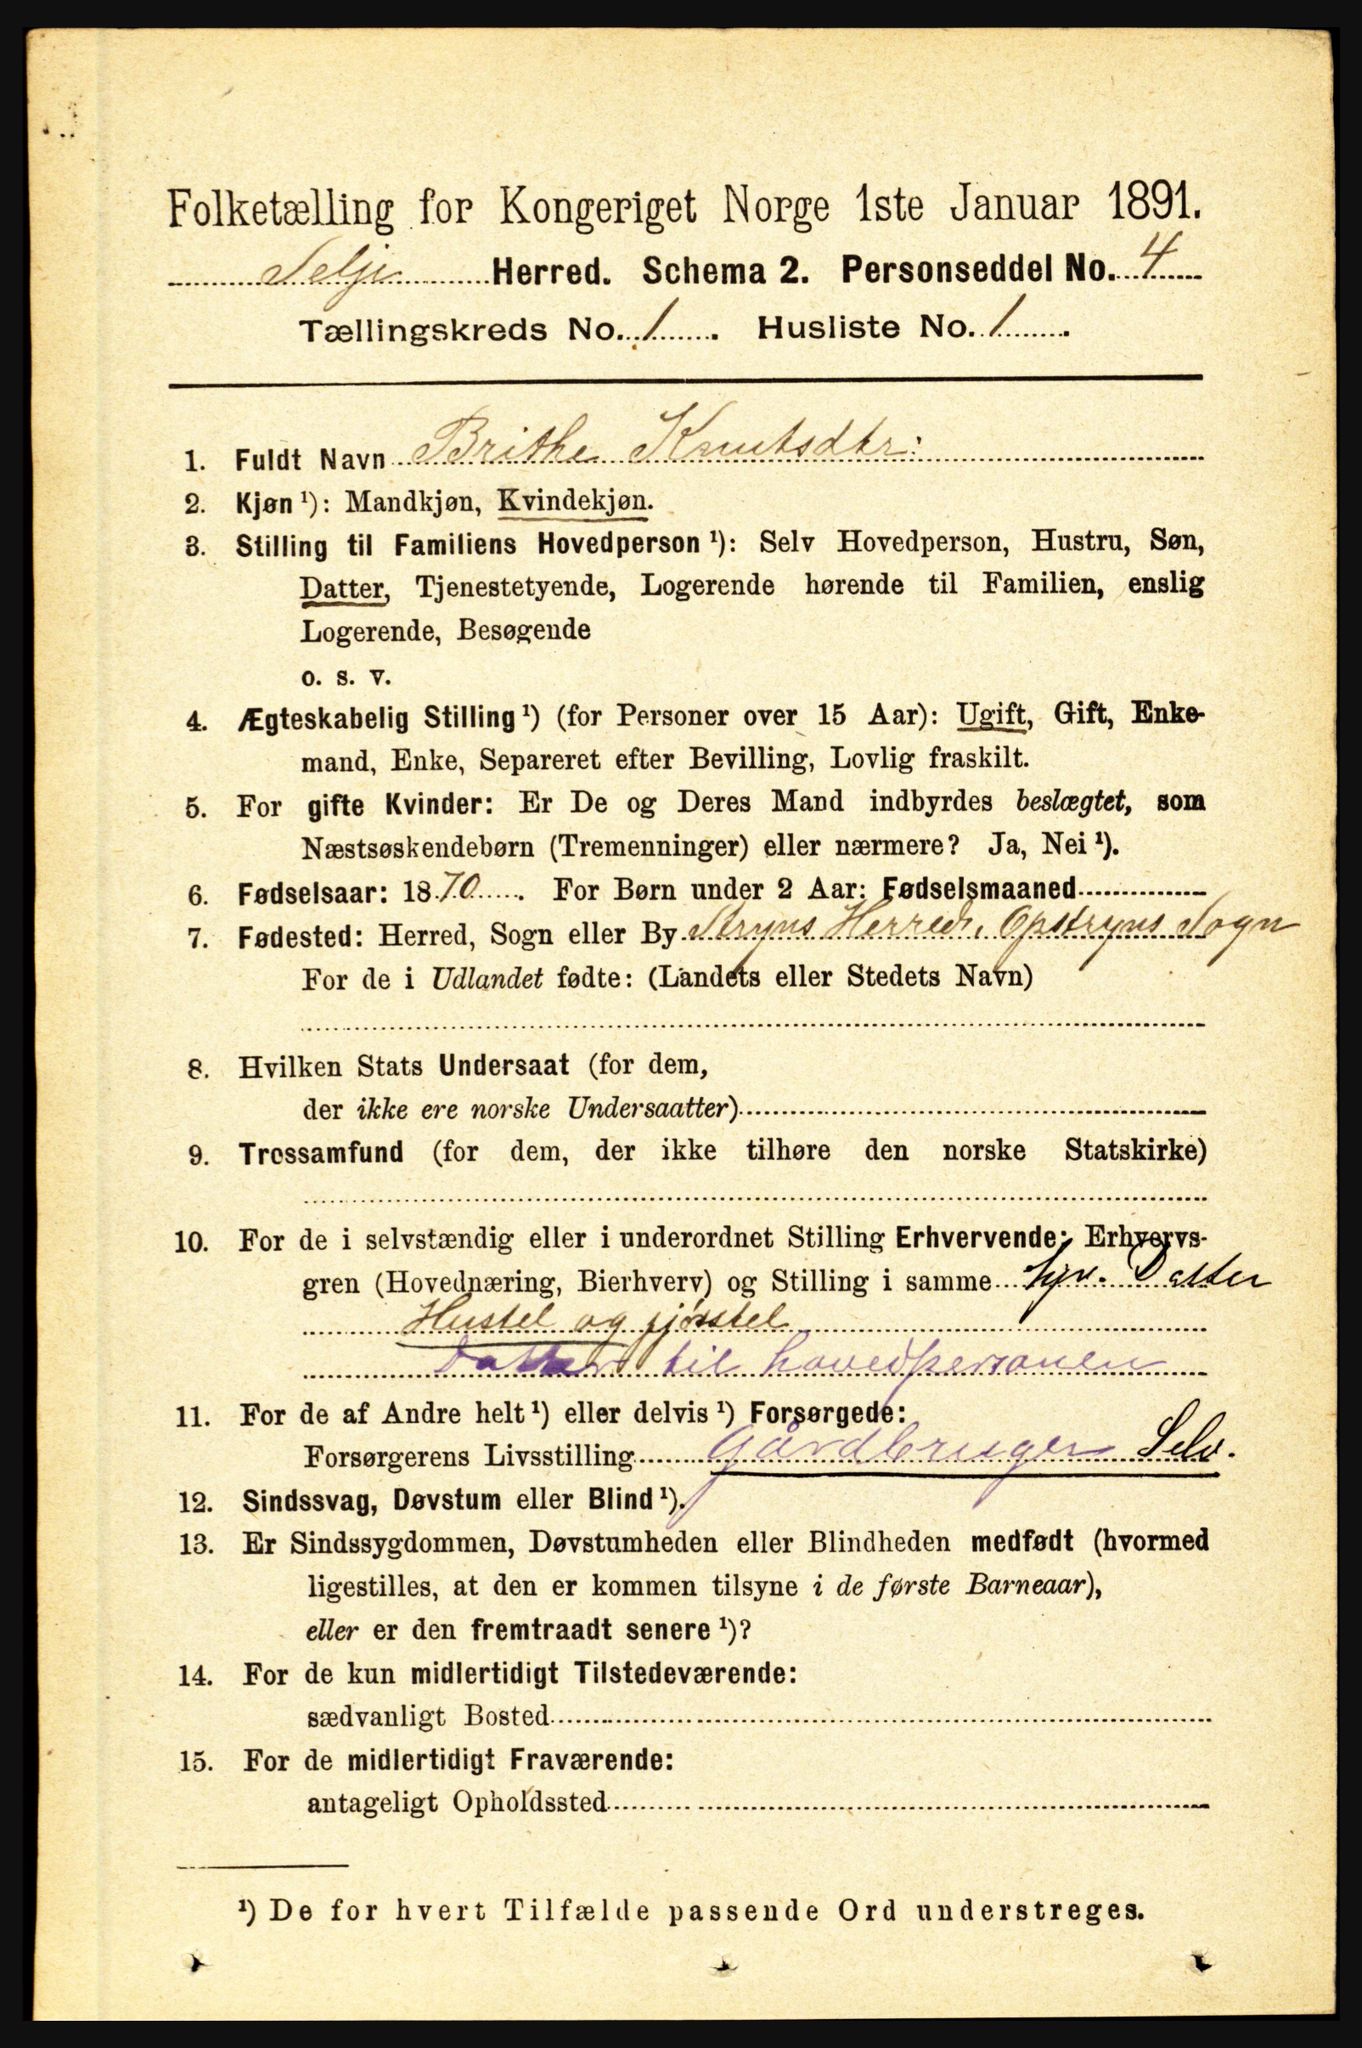 Folketælling for Kongeriget Norge 1ste Januar 1891.
Selje Herred. Schema 2. Personseddel No. 4
Tællingskreds No. 1. Husliste No. 1.
1. Fuldt Navn Brithe Knutsdtr:
2. Kjøn ¹): Mandkjøn, Kvindekjøn.
3. Stilling til Familiens Hovedperson ¹): Selv Hovedperson, Hustru, Søn,
Datter, Tjenestetyende, Logerende hørende til Familien, enslig
Logerende, Besøgende
o. s. v.
4. Ægteskabelig Stilling ¹) (for Personer over 15 Aar): Ugift, Gift, Enke-
mand, Enke, Separeret efter Bevilling, Lovlig fraskilt.
5. For gifte Kvinder: Er De og Deres Mand indbyrdes beslægtet, som
Næstsøskendebørn (Tremenninger) eller nærmere? Ja, Nei ¹).
6. Fødselsaar: 1870. For Børn under 2 Aar: Fødselsmaaned
7. Fødested: Herred, Sogn eller By Stryns Herred, Opstryns Sogn
For de i Udlandet fødte: (Landets eller Stedets Navn)
8. Hvilken Stats Undersaat (for dem,
der ikke ere norske Undersaatter)
9. Trossamfund (for dem, der ikke tilhøre den norske Statskirke)
10. For de i selvstændig eller i underordnet Stilling Erhvervende: Erhvervs-
gren (Hovednæring, Bierhverv) og Stilling i samme Hjv. Datter
Hustel og fjøsstel
Datter til hovedpersonen
11. For de af Andre helt ¹) eller delvis ¹) Forsørgede:
Forsørgerens Livsstilling Gårdbruger Selv.
12. Sindssvag, Døvstum eller Blind ¹).
13. Er Sindssygdommen, Døvstumheden eller Blindheden medfødt (hvormed
ligestilles, at den er kommen tilsyne i de første Barneaar),
eller er den fremtraadt senere ¹)?
14. For de kun midlertidigt Tilstedeværende:
sædvanligt Bosted
15. For de midlertidigt Fraværende:
antageligt Opholdssted
¹) De for hvert Tilfælde passende Ord understreges.